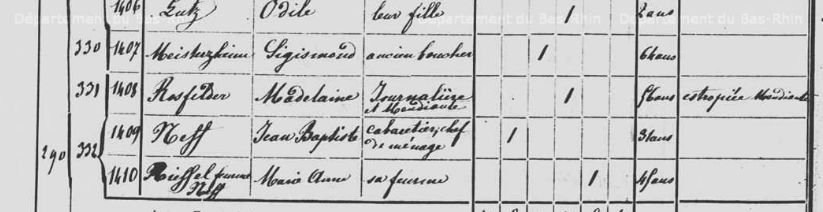 Département du Bas-Rhin Département du Bas-Rhin
1406 Lutz Odile leur fille 1 2 ans
330 1407 Meistertzheim Sigismond ancien boucher 1 64 ans
331 1408 Rosfelder Madelaine Journalière et Mendiante 1 56 ans estropiée Mendiante
1409 Neff Jean Baptiste cabaretier, chef de ménage 1 31 ans
290 332
1410 femme Neff Marie Anne sa femme 1 45 ans